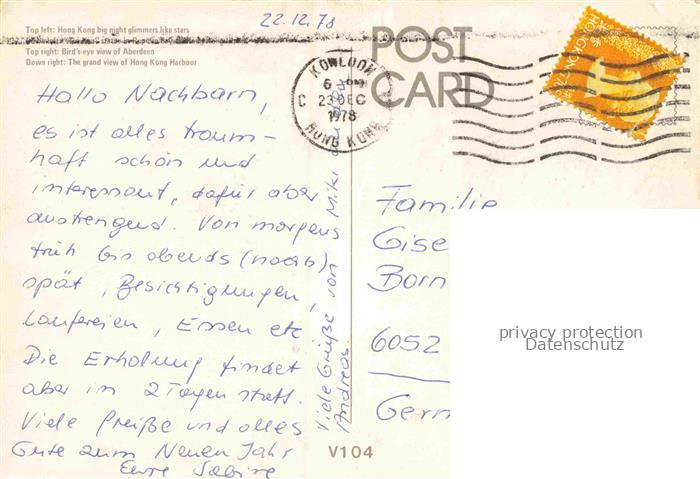 22.12.78
Top left: Hong Kong big night glimmers like stars
Top right: Bird's-eye view of Aberdeen
Down right: The grand view of Hong Kong Harboor
POST
CARD
KOWLOON
6 PM
C 23 DEC
1978
HONG KONG
HONG KONG
Hallo Nachbarn,
es ist alles traum-
haft schön und
interessant, dafür aber
anstrengend. Von morgens
früh bis abends (nachts)
spät, Besichtigungen,
Laufereien, Essen etc
Die Erholung findet
aber in 2 Tagen statt.
Viele Grüße und alles
Gute zum Neuen Jahr
Eure Sabine
Viele Grüße von Miki
Andreas
Familie
Gise
Born
6052
Germ
privacy protection
Datenschutz
V104